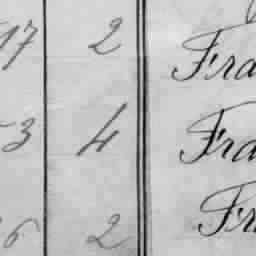 17 2 Fra
53 4 Fra
6 2 Fr